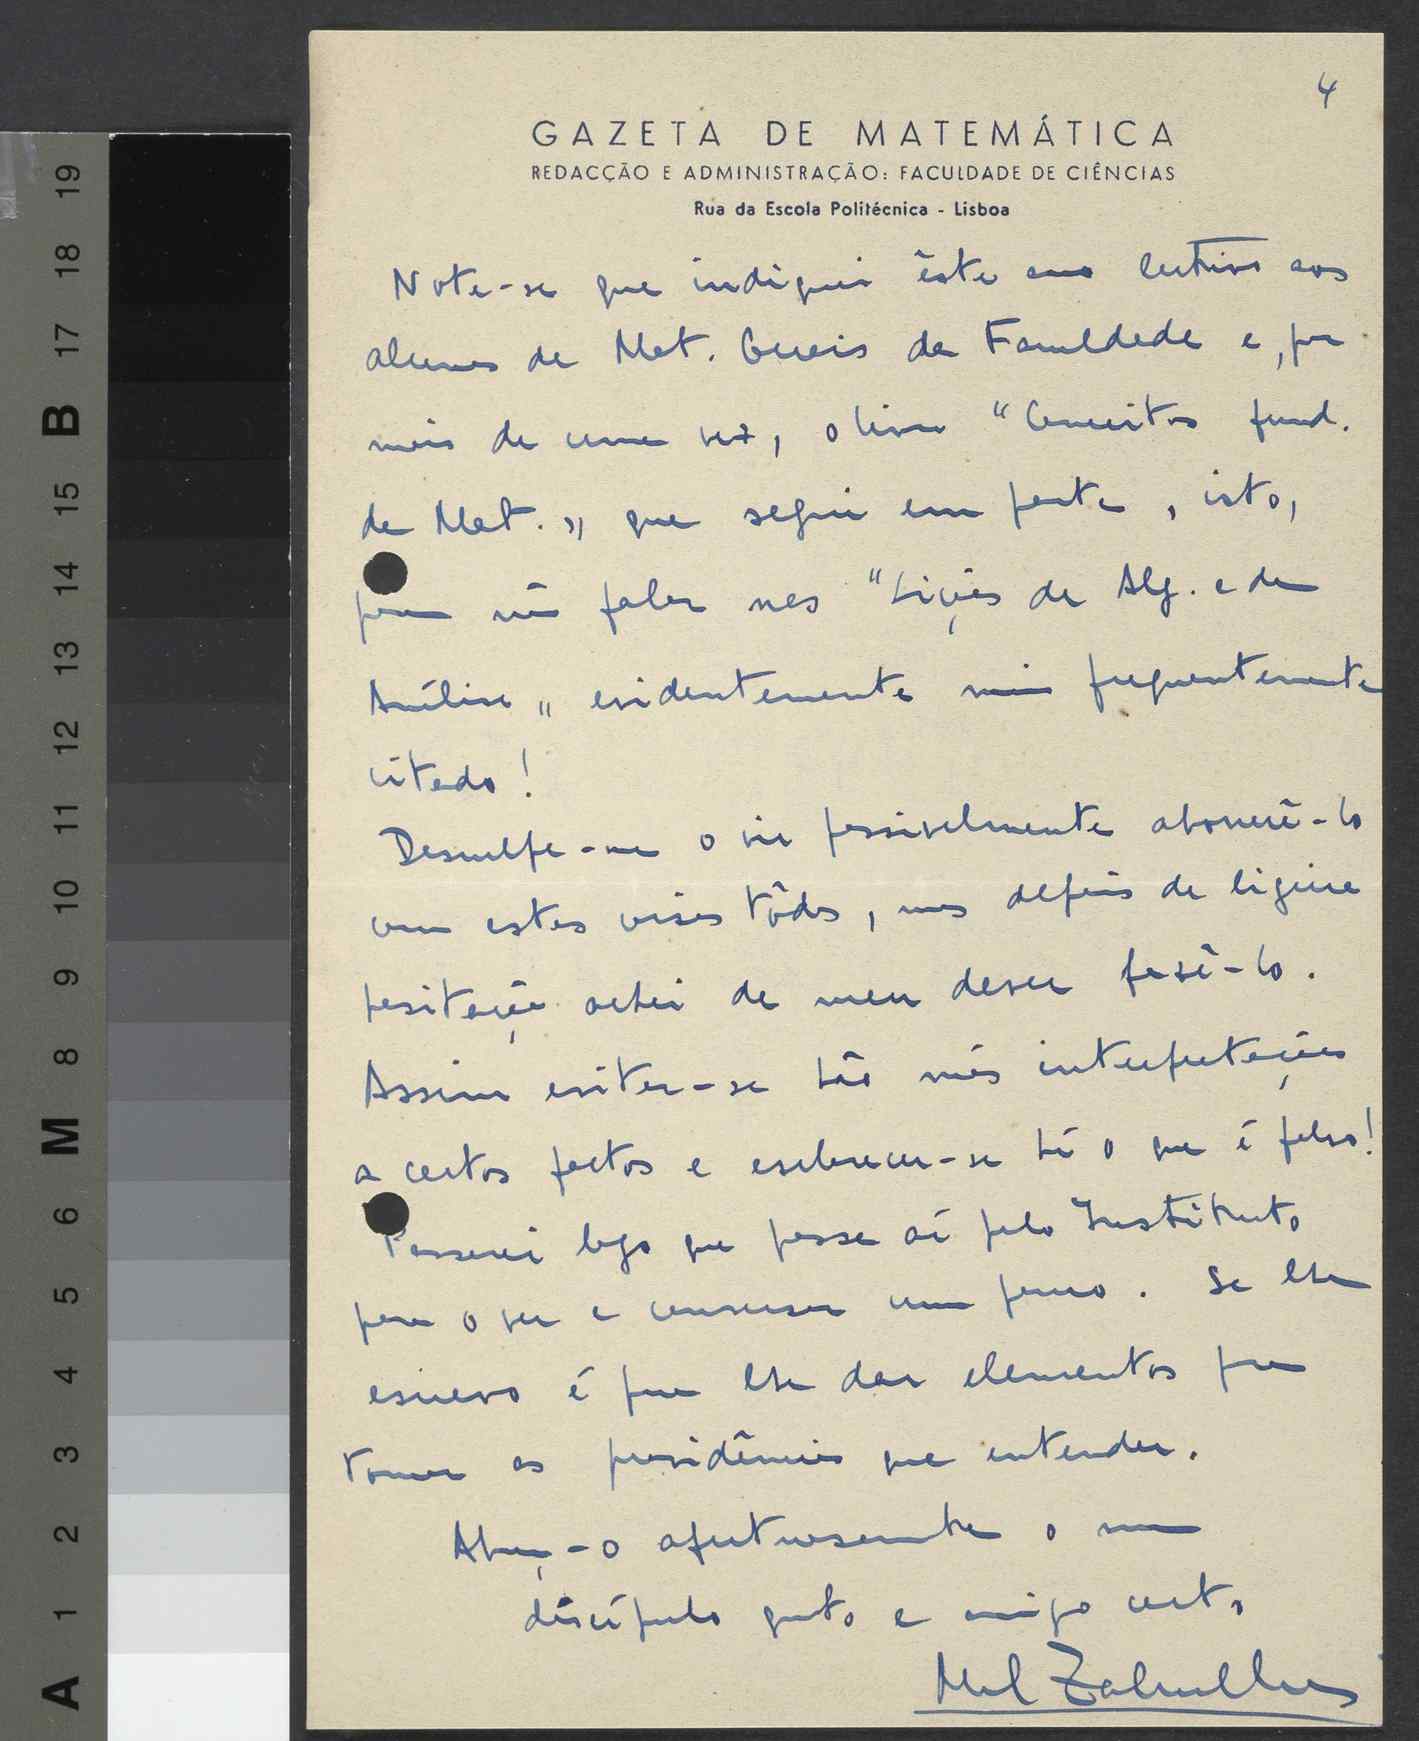 4
GAZETA DE MATEMÁTICA
REDACÇÃO E ADMINISTRAÇÃO: FACULDADE DE CIÊNCIAS
Rua da Escola Politécnica - Lisboa
Note-se que indiquei êste ano lectivo aos
alunos de Mat. Gerais da Faculdade e, por
mais de uma vez, o livro "Conceitos fund.
da Mat.," que segui em parte, isto,
para não falar nas "Lições de Alg. e de
Análise" evidentemente mais frequentemente
citado!
Desculpe-me o vir possivelmente aborrecê-lo
com estas coisas tôdas, mas depois de ligeira
hesitação achei de meu dever fazê-lo.
Assim evitar-se hão más interpretações
a certos factos e esclarecer-se há o que é falso!
Passarei logo que possa aí pelo Instituto
para o ver e conversar um pouco. Se lhe
escrevo é para lhe dar elementos para
tomar as providências que entender.
Abraça-o afectuosamente o seu
discípulo grato e amigo certo
Mel Zaluar
A 1 2 3 4 5 6 M 8 9 10 11 12 13 14 15 B 17 18 19